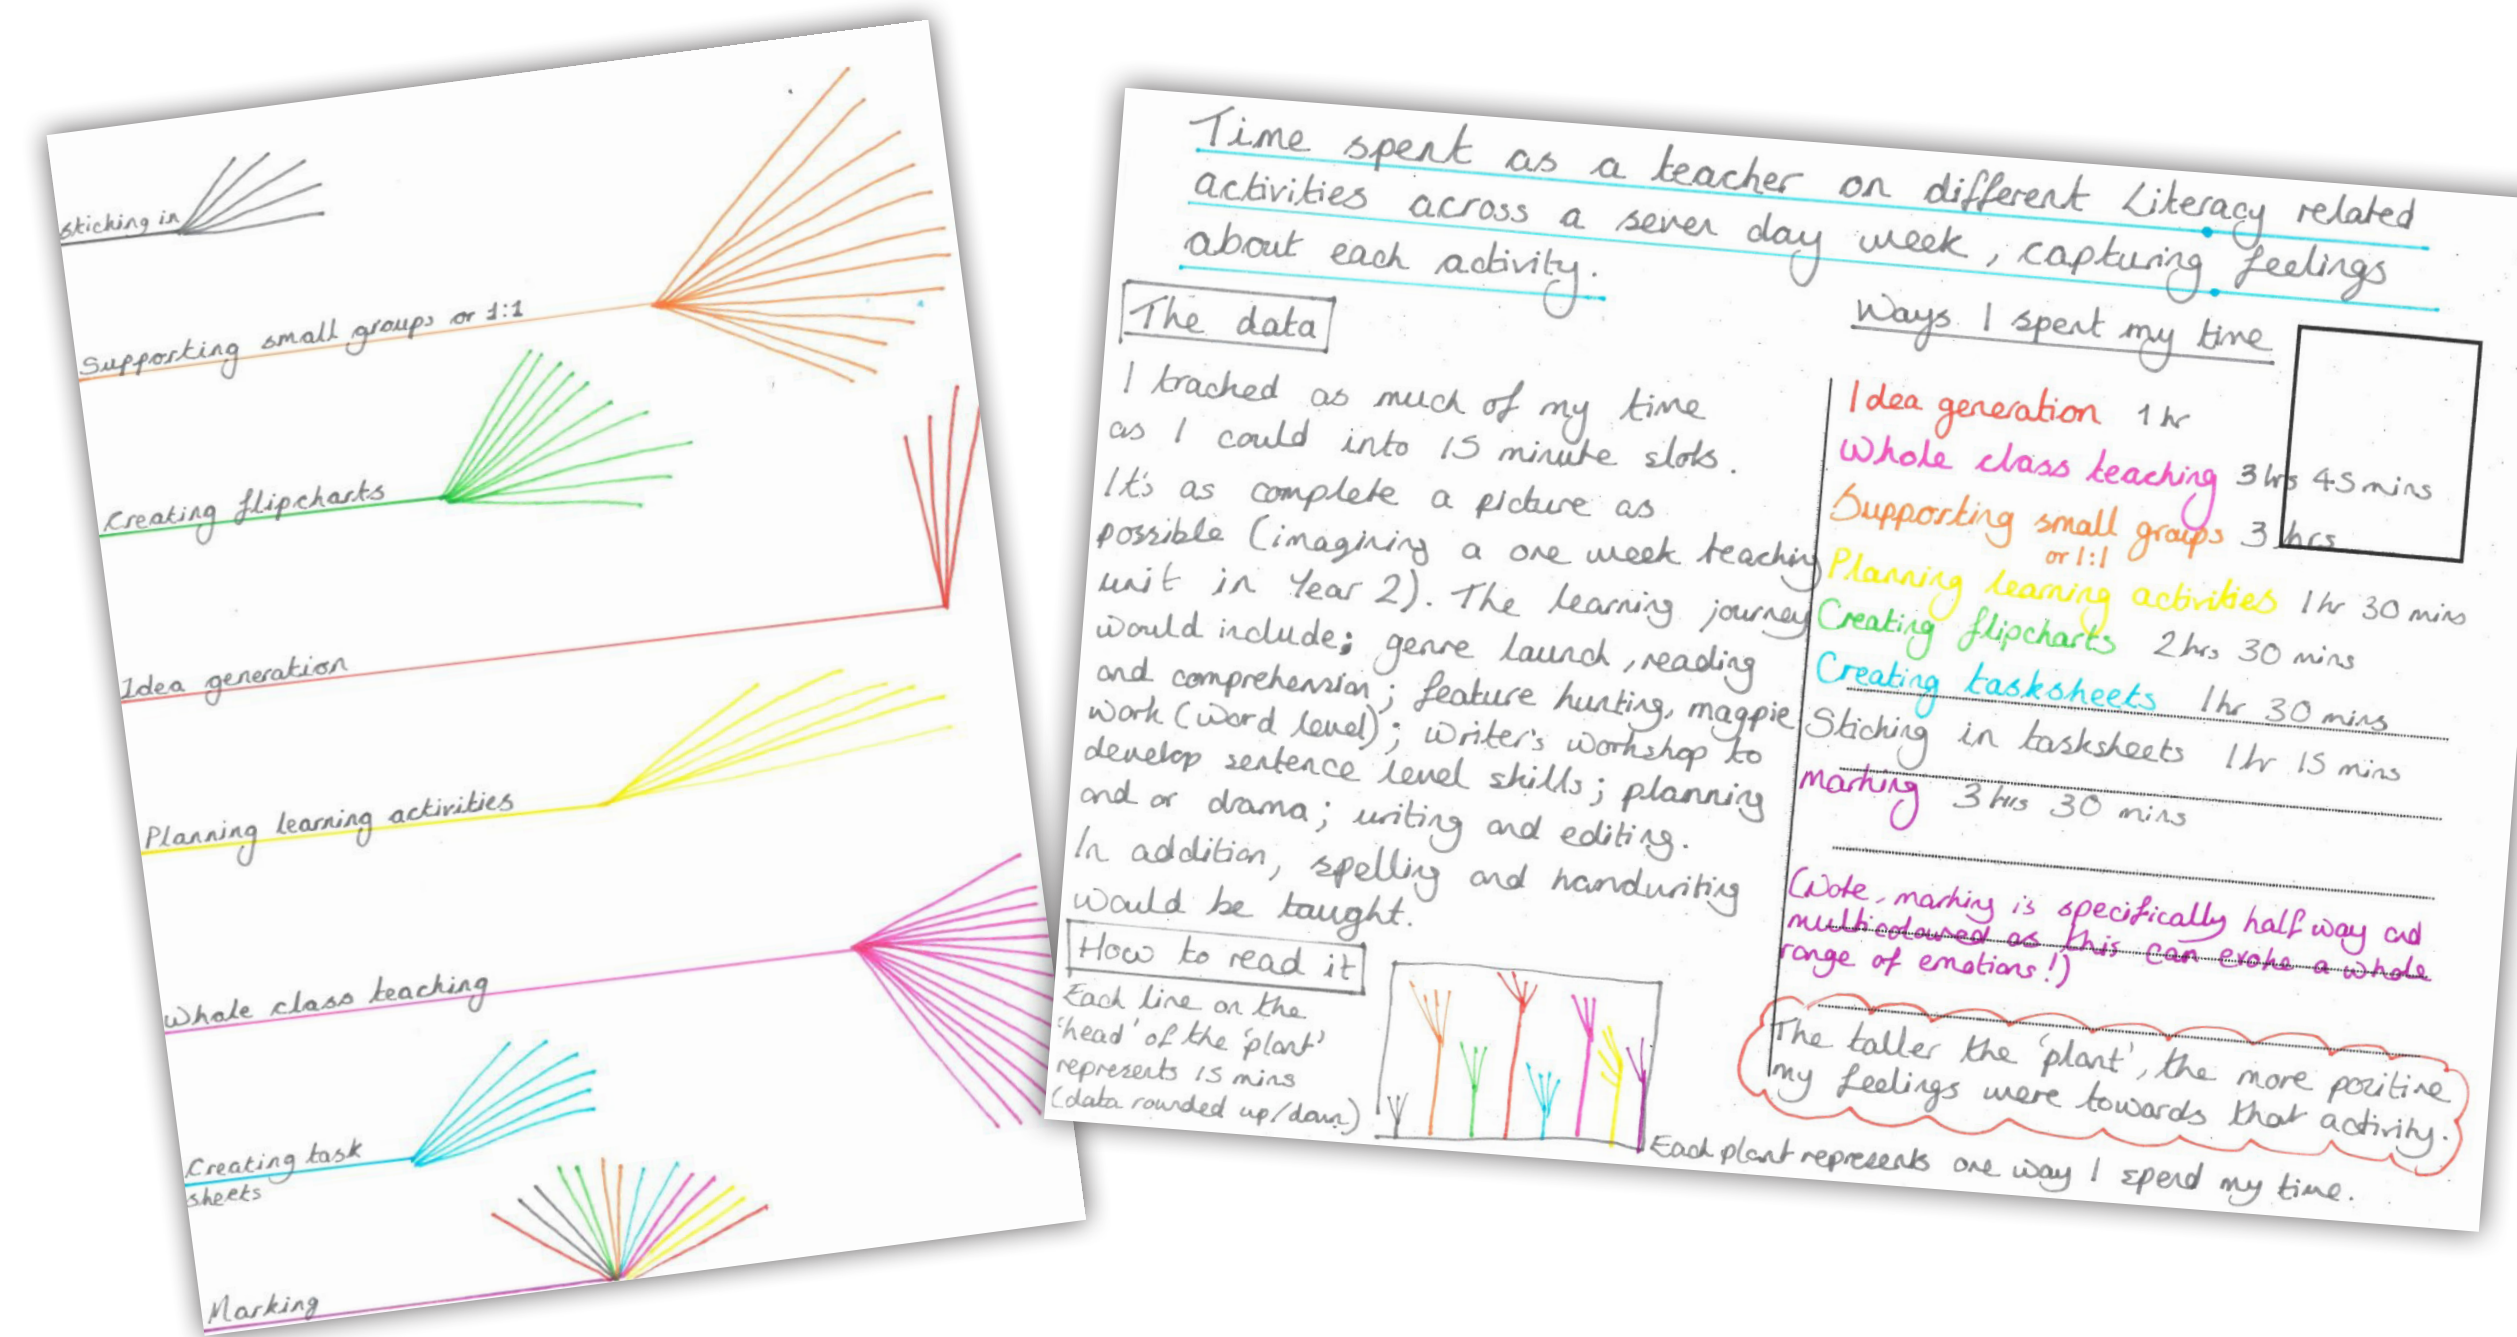 sticking in
Supporting small groups or 1:1
Creating flipcharts
Idea generation
Planning learning activities
Whole class teaching
Creating task
sheets
Marking
Time spent as a teacher on different Literacy related
activities across a seven day week, capturing feelings
about each activity.
The data
I tracked as much of my time
as I could into 15 minute slots.
It's as complete a picture as
possible (imagining a one week teaching
unit in Year 2). The learning journey
would include; genre launch, reading
and comprehension; feature hunting, magpie
work (word level); writer's workshop to
develop sentence level skills; planning
and or drama; writing and editing.
In addition, spelling and handwriting
would be taught.
How to read it
Each line on the
'head' of the 'plant'
represents 15 mins
(data rounded up/down)
Ways I spent my time
Idea generation 1 hr
Whole class teaching 3 hrs 45 mins
Supporting small groups 3 hrs
or 1:1
Planning learning activities 1 hr 30 mins
Creating flipcharts 2 hrs 30 mins
Creating tasksheets 1 hr 30 mins
Sticking in tasksheets 1 hr 15 mins
Marking 3 hrs 30 mins
(Note, marking is specifically half way and
multicoloured as this can evoke a whole
range of emotions!)
The taller the 'plant', the more positive
my feelings were towards that activity.
Each plant represents one way I spend my time.